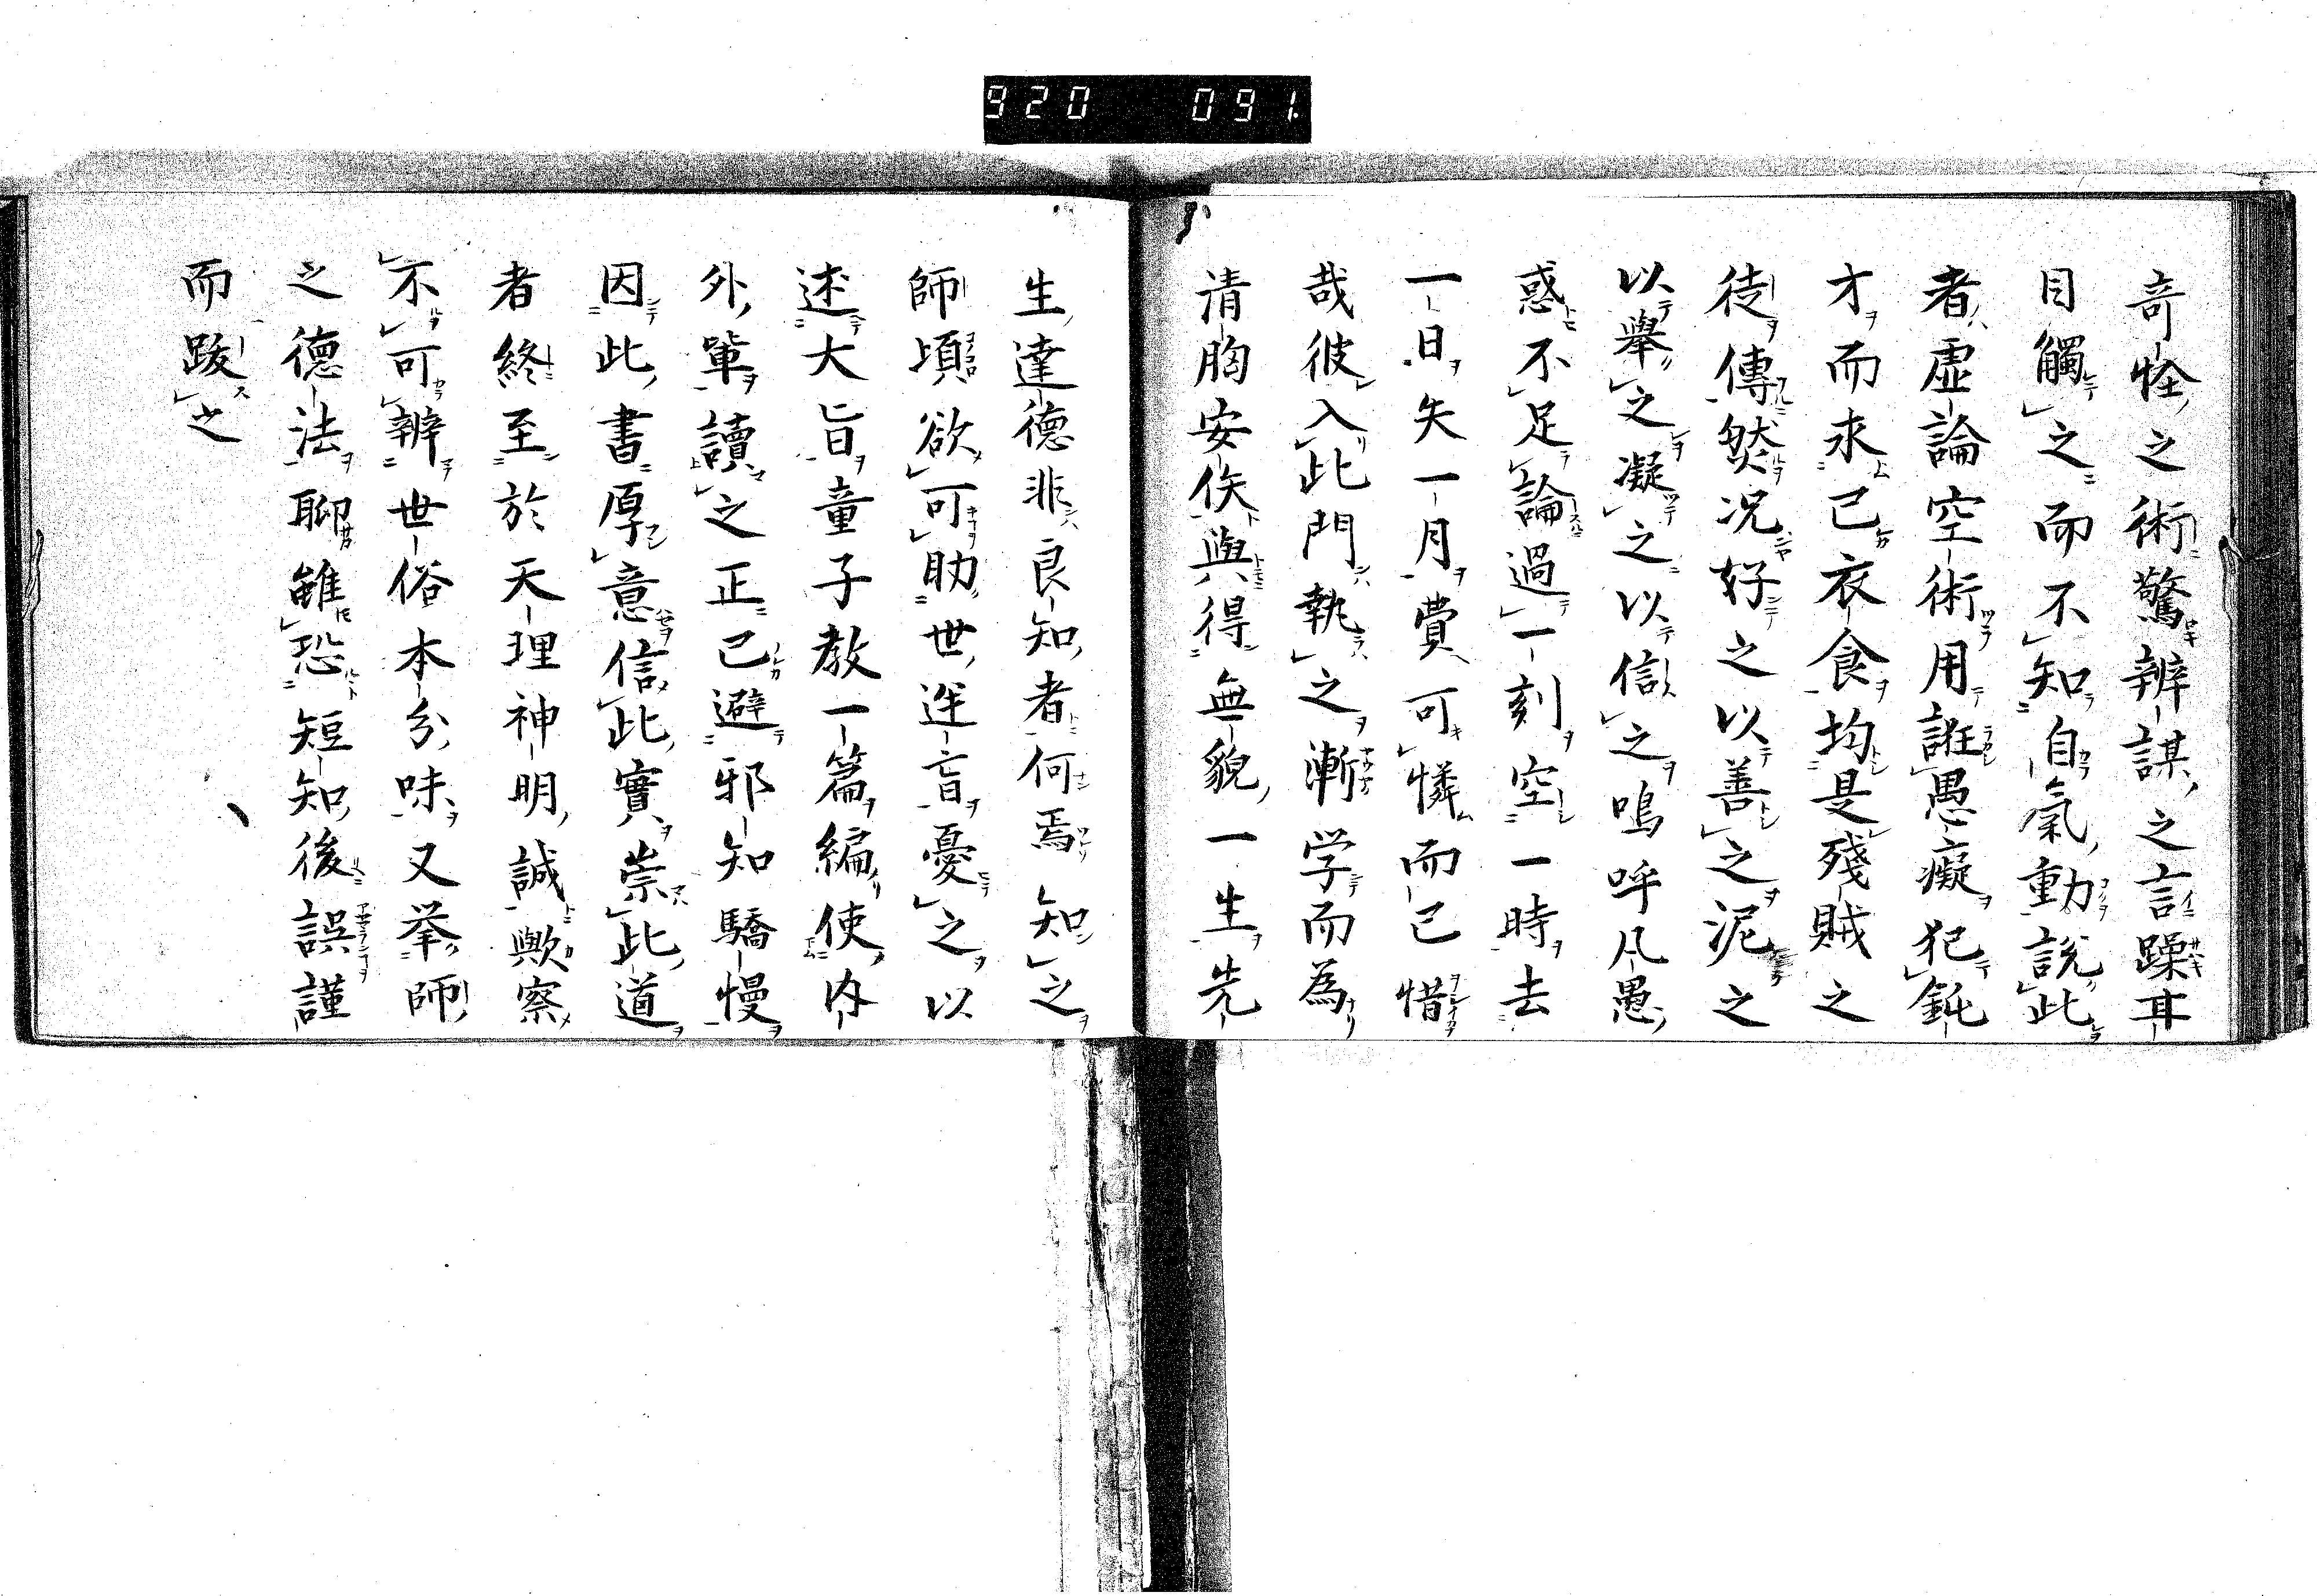 920 091.
奇怪之術驚辨謀之言躁耳
目觸之而不知自氣動說此
者虛論空術用誑愚癡犯鈍
才而求己衣食均是殘賊之
徒傳焚況好之以善之泥之
以舉之凝之以信之嗚呼凡愚
惑不足論過一刻空一時去
一日矢一月費可憐而已惜
哉彼入此門執之漸学而為
清胸安佚與得無貌一生先
生達德非良知者何焉知之
師頃欲可助世迷盲憂之以
述大旨童子教一篇編使内
外單讀之正己避邪知驕慢
因此書厚意信此實崇此道
者終至於天理神明誠歟察
不可辨世俗本分味又挙師
之德法聊雖恐短知後誤謹
而跋之